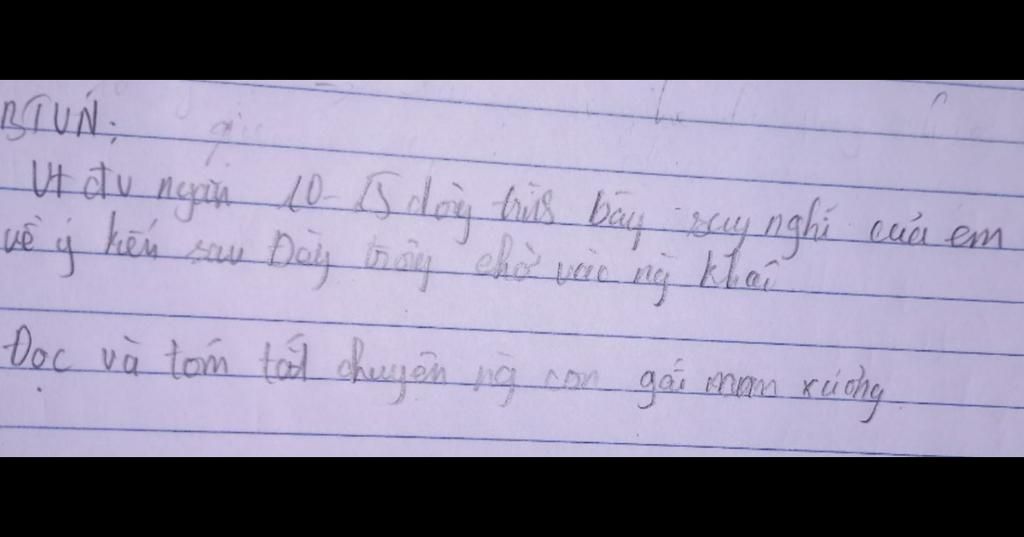 BTVN:
Vt đv ngắn 10-15 dòng trình bày suy nghĩ của em
về ý kến sau Đừng trông chờ vào ng khác
Đọc và tóm tắt chuyện ng con gái nam xương